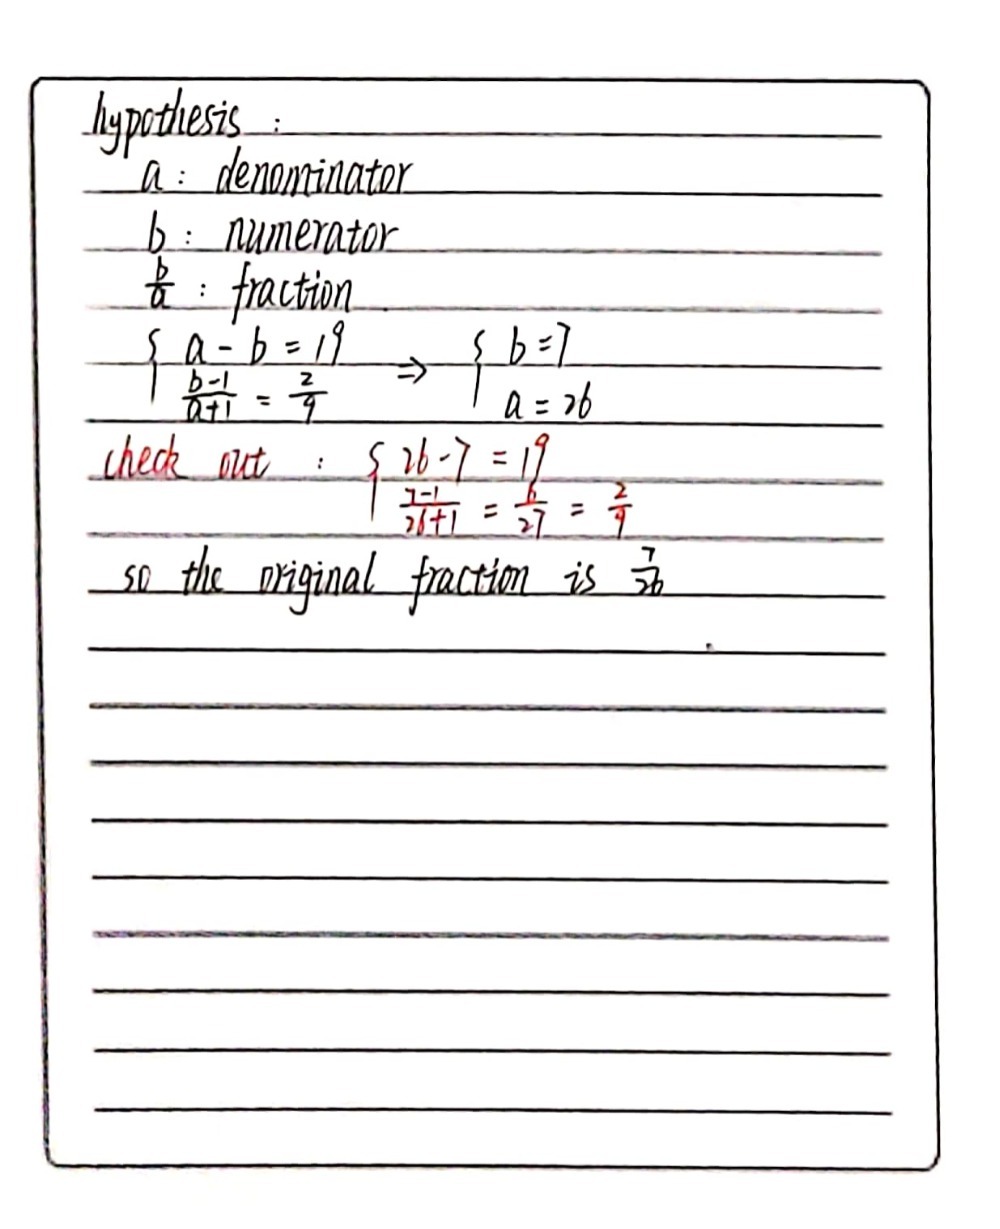 hypothesis :
a : denominator
b : numerator
b/a : fraction
{ a - b = 19 ⇒ { b = 7
(b-1)/(a+1) = 2/9 a = 26
check out : { 26 - 7 = 19
(7-1)/(26+1) = 6/27 = 2/9
so the original fraction is 7/26